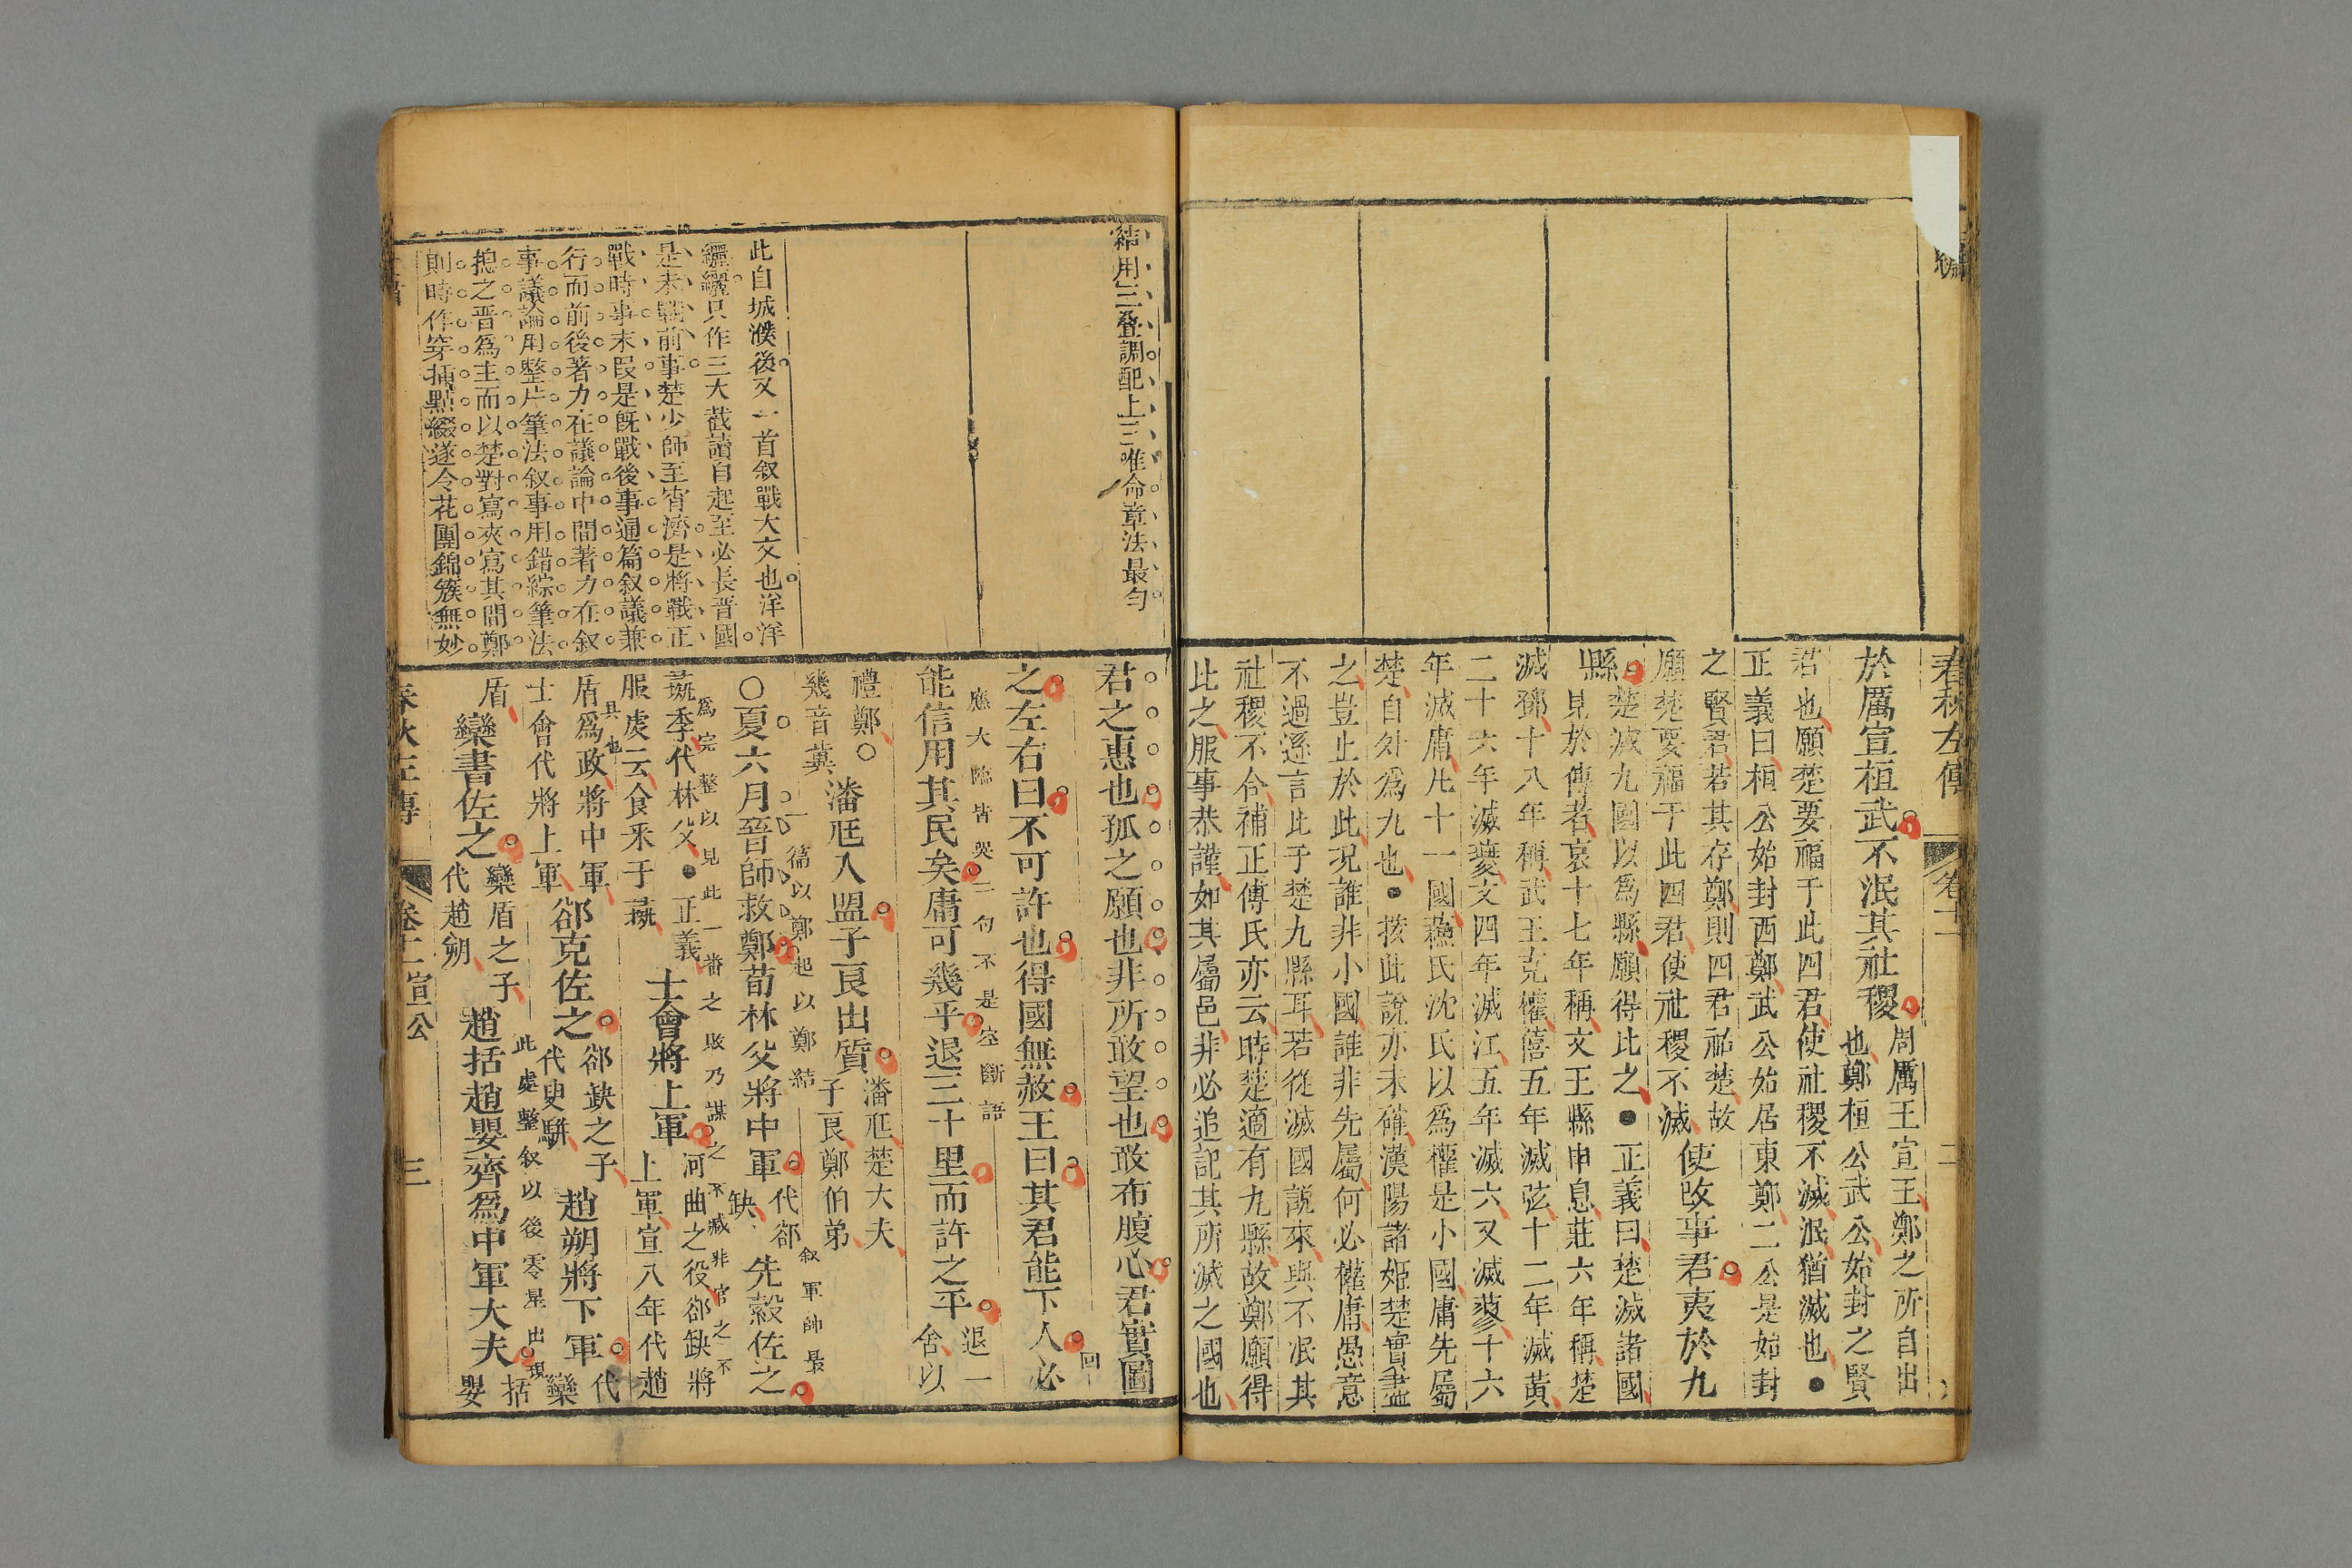 春秋左傳
卷十一
於厲宣桓武不泯其社稷
周厲王宣王鄭之所自出
也鄭桓公武公始封之賢
君也願楚要福于此四君使社稷不滅泯猶滅也●
正義曰桓公始封西鄭武公始居東鄭二公是始封
之賢君若其存鄭則四君祐楚故
願楚要福于此四君使社稷不滅
使改事君夷於九
縣
楚滅九國以爲縣願得比之●正義曰楚滅諸國
見於傳者哀十七年稱文王縣申息莊六年稱楚
滅鄧十八年稱武王克權僖五年滅弦十二年滅黃
二十六年滅夔文四年滅江五年滅六又滅蓼十六
年滅庸凡十一國蘇氏沈氏以爲權是小國庸先屬
楚自外爲九也●按此說亦未確漢陽諸姬楚實盡
之豈止於此況誰非小國誰非先屬何必權庸愚意
不過遜言比于楚九縣耳若從滅國說來與不泯其
社稷不合補正傳氏亦云時楚適有九縣故鄭願得
比之服事恭謹如其屬邑非必追記其所滅之國也
結用三叠調配上三唯命章法最勻
此自城濮後又一首叙戰大文也洋洋
纚纚只作三大截讀自起至必長晉國
是未戰前事楚少師至宵濟是將戰正
戰時事末叚是旣戰後事通篇叙議兼
行而前後著力在議論中間著力在叙
事議論用整片筆法叙事用錯綜筆法
揔之晉爲主而以楚對寫夾寫其間鄭
則時作穿揷點綴遂令花團錦簇無妙
君之惠也孤之願也非所敢望也敢布腹心君實圖
之左右曰不可許也得國無赦王曰其君能下人必
回
應大臨皆哭二句不是空斷語
能信用其民矣庸可幾乎退三十里而許之平
退一
舍以
禮鄭○
幾音冀
潘尫入盟子良出質
潘尫楚大夫
子良鄭伯弟
一篇以鄭起以鄭結
叙軍帥最
○夏六月晉師救鄭荀林父將中軍
代郤
缺
先縠佐之
爲完整以見此一番之敗乃謀之不臧非官之不
具也
彘季代林父●正義
服虔云食采于彘
士會將上軍
河曲之役郤缺將
上軍宣八年代趙
盾爲政將中軍
士會代將上軍
郤克佐之
郤缺之子
代臾騈
趙朔將下軍
代
欒
此處整叙以後零星出現
盾
欒書佐之
欒盾之子
代趙朔
趙括趙嬰齊爲中軍大夫
括
嬰
春秋左傳
卷十一宣公
三